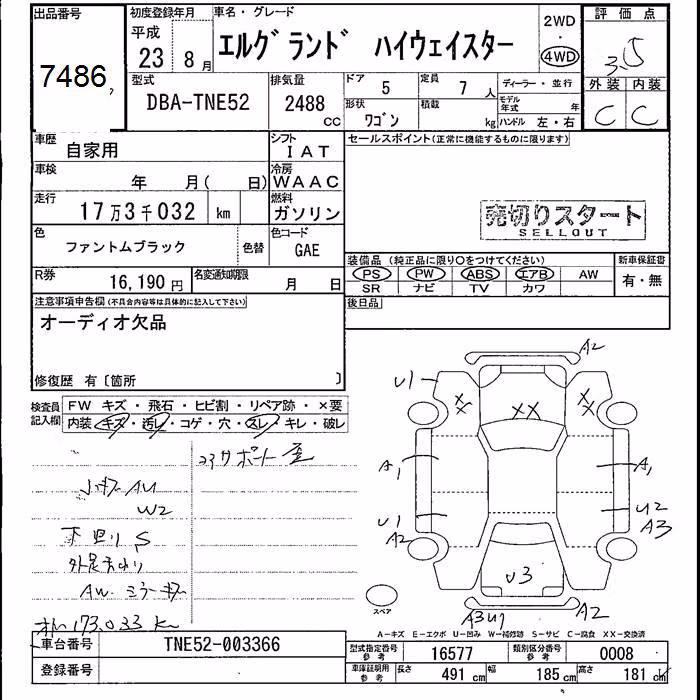 出品番号
7486
初度登録年月
平成
23 8月
車名・グレード
エルグランド ハイウェイスター
2WD
4WD
評価点
3.5
外装 内装
C C
型式
DBA-TNE52
排気量
2488
cc
ドア
5
定員
7人
形状
ワゴン
積載
kg
ディーラー・並行
モデル年式 年
ハンドル 左・右
車歴
自家用
シフト
IAT
セールスポイント(正常に機能するものに限ります)
車検
年 月( 日)
冷房
WAAC
走行
17万3千032 km
燃料
ガソリン
売切りスタート
SELLOUT
色
ファントムブラック
色替
色コード
GAE
装備品(純正品に限り○をつけてください)
新車保証書
PS PW ABS エアB AW
SR ナビ TV カワ
有・無
R券
16,190円
名変通知期限
月 日
後日品
注意事項申告欄(不具合内容等は具体的に記入して下さい)
オーディオ欠品
修復歴 有〔箇所 〕
検査員記入欄
FW キズ・飛石・ヒビ割・リペア跡・×要
内装 キズ・汚レ・コゲ・穴・スレ・キレ・破レ
コアサポート
AU
W2
S
AW. ミラーキズ
173.033 K
A2
U1
XX
XX
XX
A1
A1
U1
A2
U2
A3
U3
A3U1
A2
スペア
A―キズ E―エクボ U―凹み W―補修跡 S―サビ C―腐食 XX―交換済
車台番号
TNE52-003366
登録番号
型式指定番号
参考
16577
類別区分番号
参考
0008
車庫証明用
参考
長さ 491cm
幅 185cm
高さ 181cm